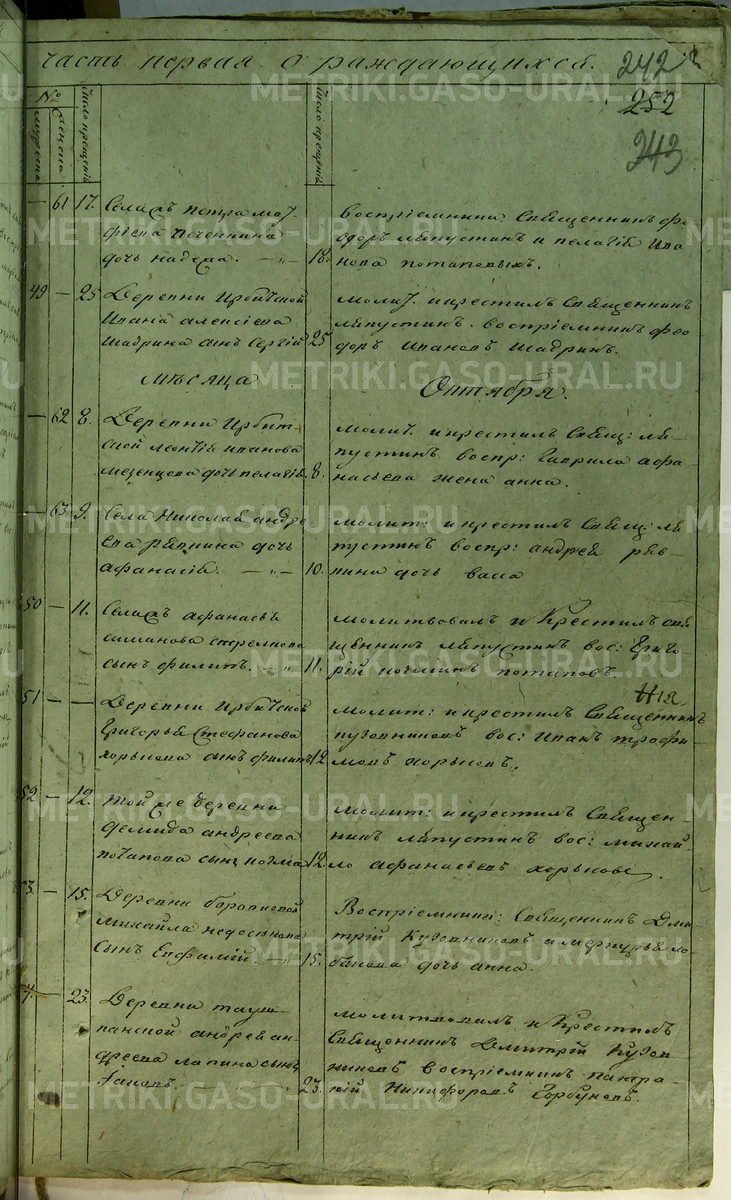 часть первая о раждающихся.
242
252
243
№
мужеска
женска
число крещенiй
число крещенiй
— 61 17. Селахъ Петра Мат.
фiева Печенкина
дочь надежа. — „ — 18.
воспрiемники Священникъ фе
одоръ Ляпустинъ и пелагiя Ива
нова потаповыхъ.
49 — 25 Деревни Ирбитской
Ивана алексiева
Шадрина сынъ Сергiй 25
молит. и крестилъ Священникъ
Ляпустинъ. воспрiемникъ фео
доръ Ивановъ Шадринъ.
мѣсяца Октября.
— 62 8. Деревни Ирбит-
ской леонтiя иванова
мезенцова дочь пелагiя 8.
молит. и крестилъ Свящ: ля-
пустинъ воспр: Гаврила афа-
насьева жена анна.
— 63. 9. Села Николая андре
ева рявкина дочь
афанасiя. — „ — 10.
молит: и крестилъ Свящ: ля
пустинъ воспр: андрея ряв-
кина дочь васа
50 — 11. Селахъ афанасья
симанова стрелкова
сынъ филипъ. — „ 11.
молитвовалъ и крестилъ свя
щенникъ ляпустинъ вос: Григо-
рiй козминъ потаповъ.
51 — — Деревни Ирбитской
Григорья Стефанова
хорькова сынъ филипъ 12
молит: и крестилъ Священникъ
кузовниковъ вос: Иванъ трофи-
мовъ хорьковъ.
52 — 12. той же деревни
демида андреева
потапова сынъ козма 12.
молит: и крестилъ Священ-
никъ ляпустинъ вос: михай-
ло афанасьевъ хорьковъ.
53. — 15. Деревни боровиковой
михайла недосекова
сынъ Евфимiй. — „ 15.
Воспрiемники: Священникъ Дми
трiй Кузовниковъ и
банова дочь анна.
4. — 23. Деревни тауш-
канской андрея ан-
дреева лапина сынъ
Iаковъ. 23.
молитвовалъ и Крестилъ
Священникъ Дмитрiй Кузов
никовъ воспрiемникъ панкра-
тiй Никифоровъ Горбуновъ.
METRIKI.GASO-URAL.RU